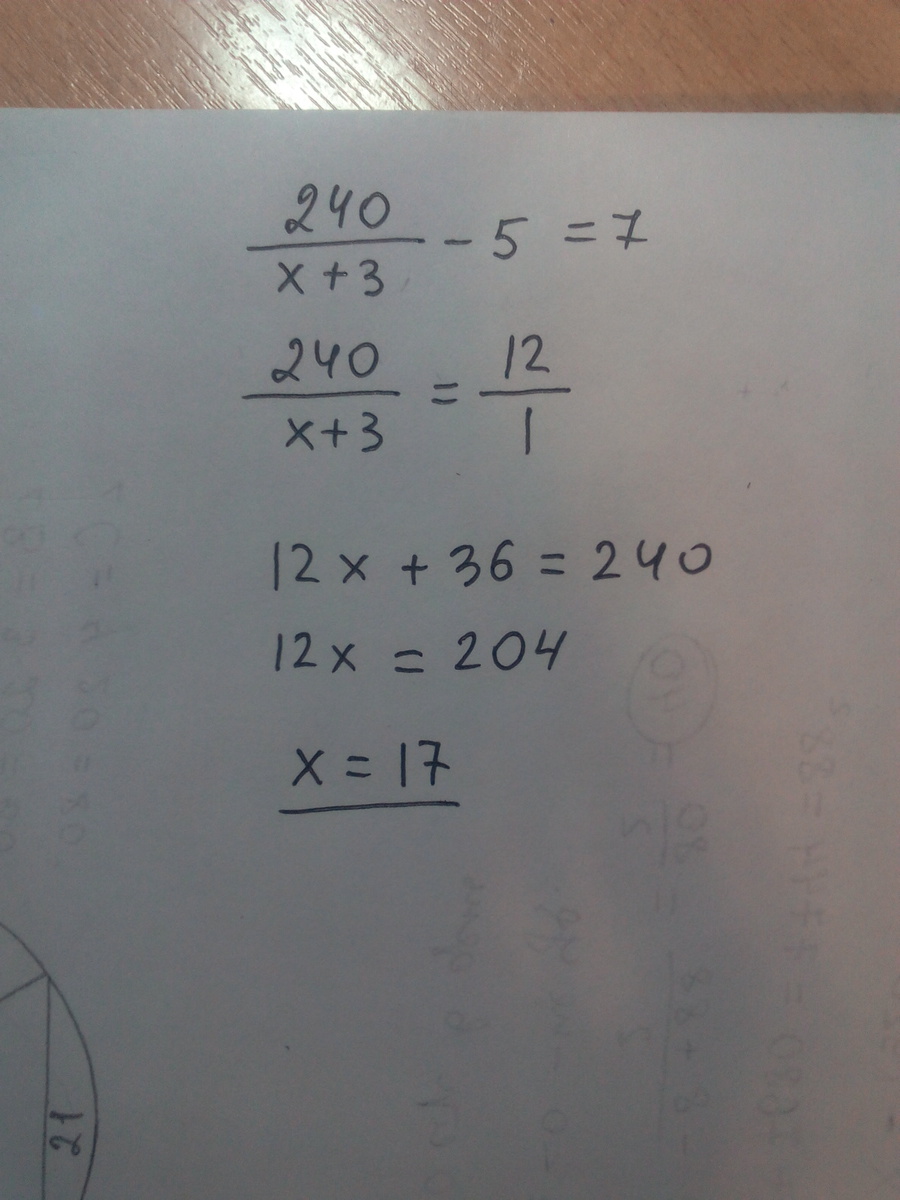 240
x + 3
- 5 = 7
240
x+3
=
12
1
12x + 36 = 240
12x = 204
x = 17
21